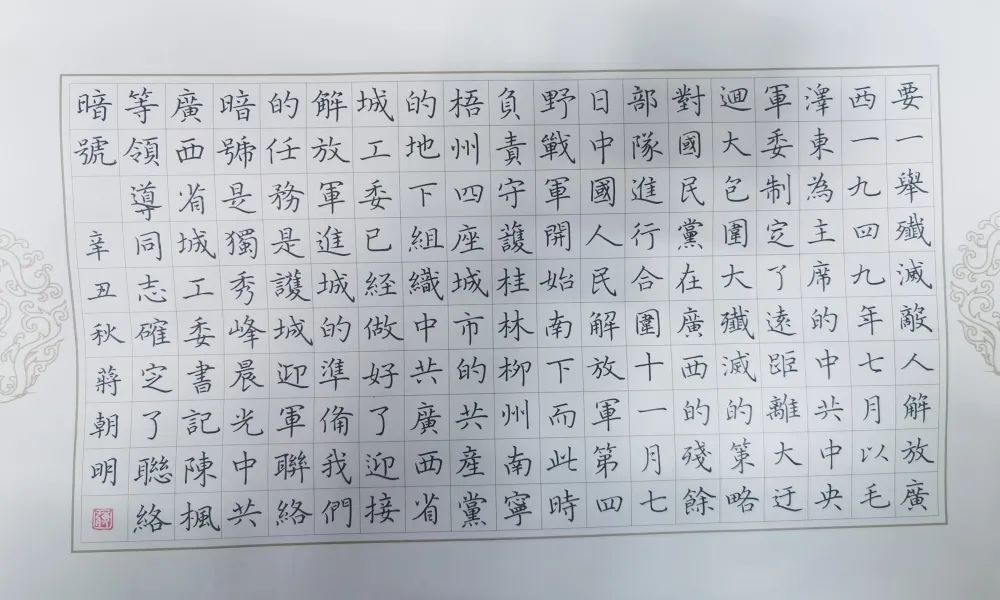 要一舉殲滅敵人解放廣
西一九四九年七月以毛
澤東為主席的中共中央
軍委制定了遠距離大迂
迴大包圍大殲滅的策略
對國民黨在廣西的殘餘
部隊進行合圍十一月七
日中國人民解放軍第四
野戰軍開始南下而此時
負責守護桂林柳州南寧
梧州四座城市的共產黨
的地下組織中共廣西省
城工委已経做好了迎接
解放軍進城的準備我們
的任務是護城迎軍聯絡
暗號是獨秀峰晨光中共
廣西省城工委書記陳楓
等領導同志確定了聯絡
暗號 辛丑秋蔣朝明